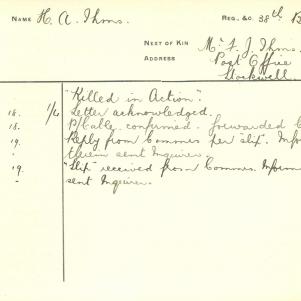 NAME H. A. Thoms. REG. &C. 38th B
NEXT OF KIN Mr. F. J. Thoms.
ADDRESS Post Office
Stockwell
"Killed in Action".
18. 1/6 Letter acknowledged.
18. P/Cable confirmed. Forwarded
19. Reply from Commrs per slip. Infor
therein sent Inquirer.
19 "Slip" received from Commrs. Inform
sent Inquirer.